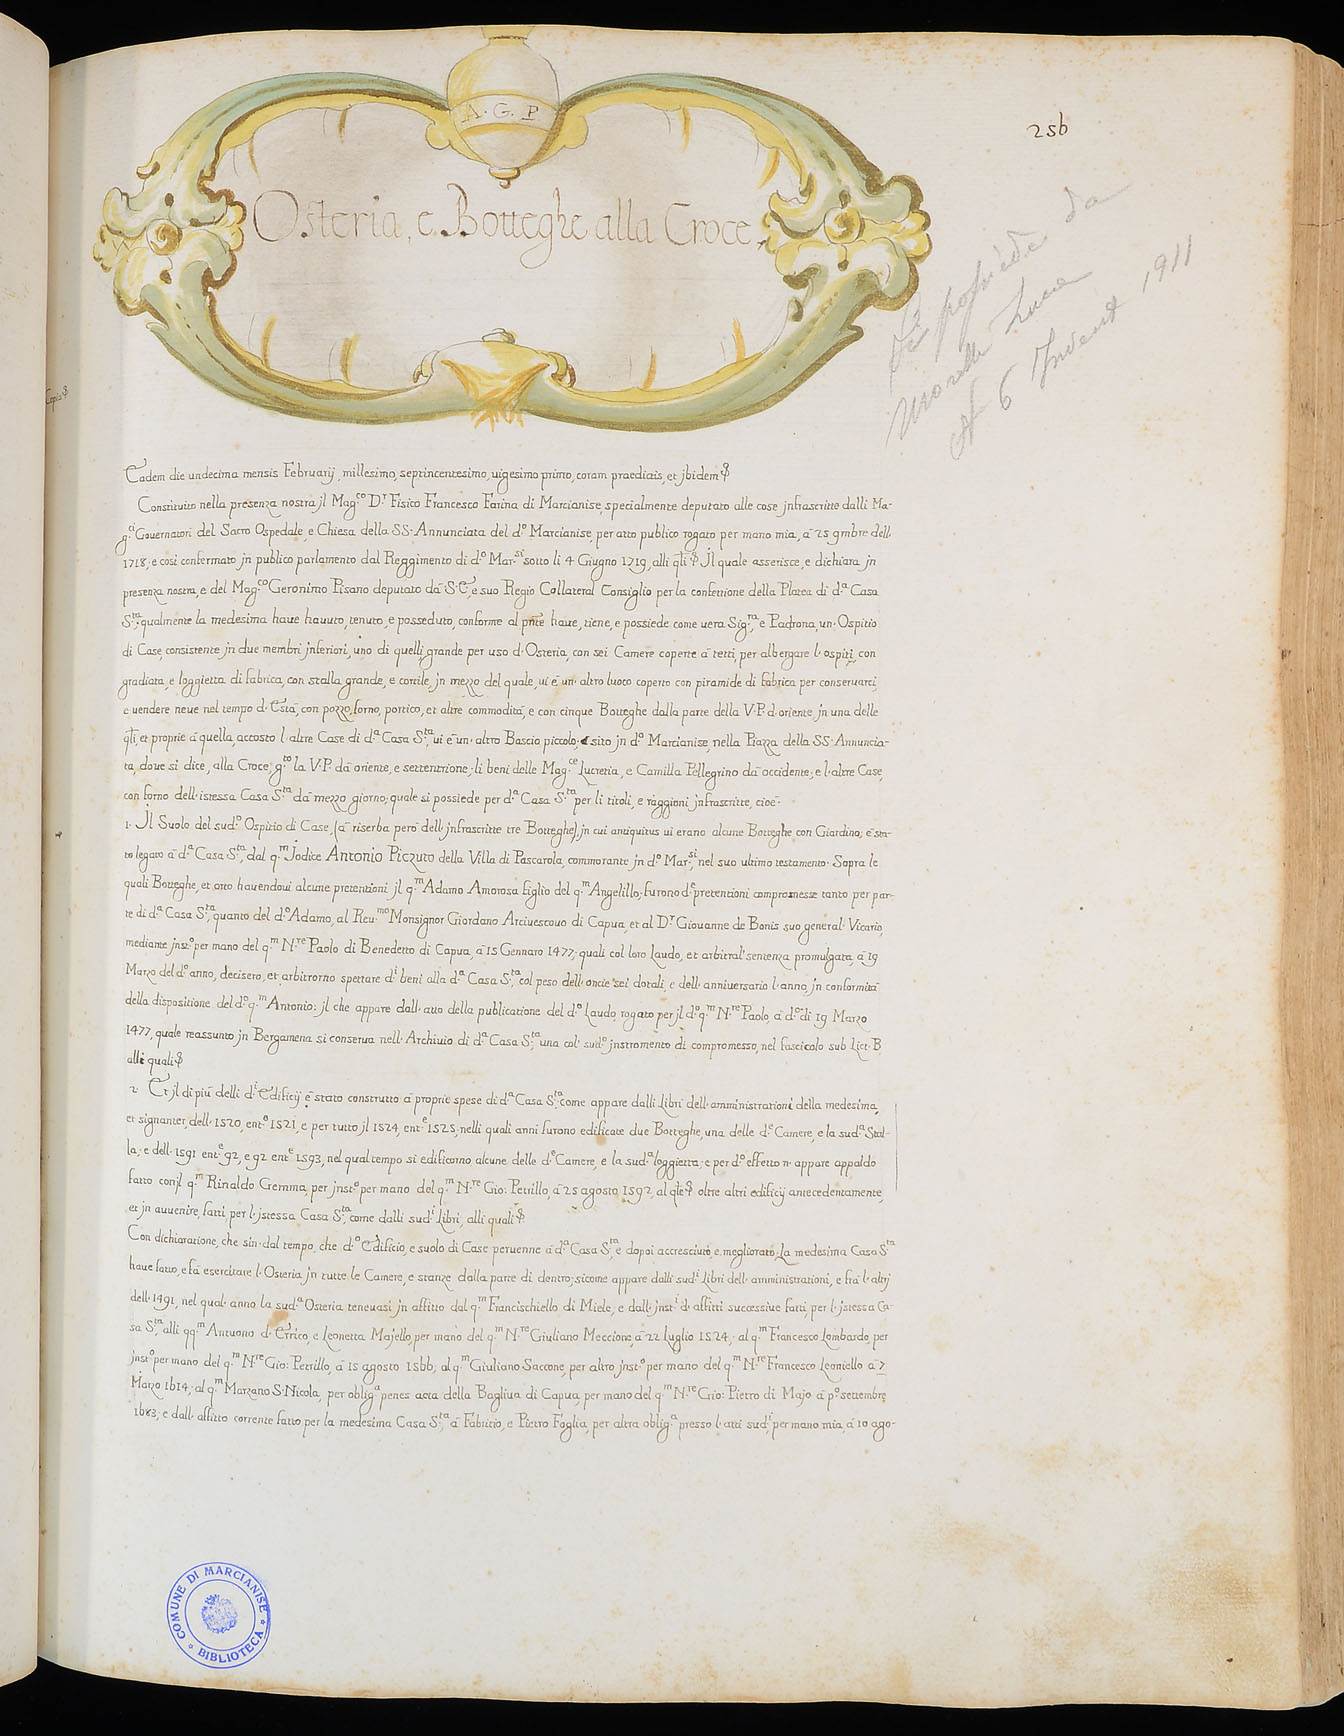 A. G. P
256
Osteria, e Botteghe alla Croce.
Si possiede da
Morelli Luca
N 6 Invent 1911
Eadem die undecima mensis Februarij, millesimo, septincentesimo, uigesimo primo, coram praedictis, et jbidem
Constituito nella presenza nostra jl Mag.co D.r Fisico Francesco Farina di Marcianise, specialmente deputato alle cose jnfrascritte dalli Ma-
g.ci Gouernatori del Sacro Ospedale, e Chiesa della SS. Annunciata del d.o Marcianise, per atto publico rogato per mano mia, à 25 9mbre dell.
1718; e così confermato jn publico parlamento dal Reggimento di d.o Mar.si sotto li 4 Giugno 1719, alli qli Jl quale asserisce, e dichiara jn
presenza nostra, e del Mag.co Geronimo Pisano deputato dà S.E, e suo Regio Collateral Consiglio per la confettione della Platea di d.a Casa
S.ta, qualmente la medesima haue hauuto, tenuto, e posseduto, conforme al pnte haue, tiene, e possiede come uera Sig.ra, e Padrona, un. Ospitio
di Case, consistente jn due membri jnferiori, uno di quelli grande per uso d. Osteria, con sei Camere coperte à tetti, per albergare l. ospiti, con
gradiata, e loggietta di fabrica, con stalla grande, e cortile, jn mezzo del quale, ui è un. altro luoco coperto con piramide di fabrica per conseruarci,
e uendere neue nel tempo d. Està, con pozzo, forno, portico, et altre commodità, e con cinque Botteghe dalla parte della V.P. d. oriente, jn una delle
qli, et proprie à quella, accosto l. altre Case di d.a Casa S.ta, ui è un. altro Bascio piccolo; sito jn d.o Marcianise, nella Piazza della SS. Annuncia-
ta, doue si dice, alla Croce; g.to la V.P. dà oriente, e settentrione; li beni delle Mag.ce Lucretia, e Camilla Pellegrino dà occidente; e l. altre Case,
con forno dell. istessa Casa S.ta dà mezzo giorno; quale si possiede per d.a Casa S.ta per li titoli, e raggioni jnfrascritte, cioè.
1. Jl Suolo del sud.o Ospitio di Case, (à riserba però dell. jnfrascritte tre Botteghe), jn cui antiquitus ui erano alcune Botteghe con Giardino; è sta-
to legato à d.a Casa S.ta, dal q.m Jodice Antonio Piczuto della Villa di Pascarola, commorante jn d.o Mar.si, nel suo ultimo testamento. Sopra le
quali Botteghe, et orto hauendoui alcune pretentioni jl q.m Adamo Amorosa figlio del q.m Angelillo; furono d.e pretentioni compromesse tanto per par-
te di d.a Casa S.ta, quanto del d.o Adamo, al Reu.mo Monsignor Giordano Arciuescouo di Capua, et al D.r Giouanne de Bonis suo general. Vicario,
mediante jnst.o per mano del q.m N.re Paolo di Benedetto di Capua, à 15 Gennaro 1477; quali col loro Laudo, et arbitral. sentenza promulgata, à 19
Marzo del d.o anno, decisero, et arbitrorno spettare d.i beni alla d.a Casa S.ta col peso dell. oncie sei dotali, e dell. anniuersario l. anno, jn conformità
della dispositione del d.o q.m Antonio: jl che appare dall. atto della publicatione del d.o Laudo, rogato per jl d.o q.m N.re Paolo, à d.o dì 19 Marzo
1477, quale reassunto jn Bergamena si conserua nell. Archiuio di d.a Casa S.ta una col. sud.o jnstromento di compromesso, nel fascicolo sub Lict. B
alli quali
2. Et jl di più delli d.i Edificij è stato construtto à proprie spese di d.a Casa S.ta, come appare dalli Libri dell. amministrationi della medesima,
et signanter, dell. 1520, ent.e 1521, e per tutto jl 1524, ent.e 1525; nelli quali anni furono edificate due Botteghe, una delle d.e Camere, e la sud.a Stal-
la; e dell. 1591 ent.e 92, e 92 ent.e 1593, nel qual tempo si edificorno alcune delle d.e Camere, e la sud.a loggietta; e per d.o effetto n. appare appaldo
fatto con jl q.m Rinaldo Gemma, per jnst.o per mano del q.m N.re Gio: Petrillo, à 25 agosto 1592, al qle oltre altri edificij antecedentemente,
et jn auuenire, fatti, per l. jstessa Casa S.ta, come dalli sud.i Libri, alli quali
Con dichiaratione, che sin. dal tempo, che d.o Edificio, e suolo di Case peruenne à d.a Casa S.ta, e dopoi accresciuto, e megliorato. La medesima Casa S.ta
haue fatto, e fà esercitare l. Osteria jn tutte le Camere, e stanze dalla parte di dentro; sicome appare dalli sud.i Libri dell. amministrationi, e frà l. altrj
dell. 1491, nel qual. anno la sud.a Osteria teneuasi jn affitto dal q.m Francischiello di Miele, e dall. jnst.i d. affitti successiue fatti, per l. jstessa Ca-
sa S.ta, alli qq.m Antuono d. Errico, e Leonetta Majello, per mano del q.m N.re Giuliano Meccione, à 22 Luglio 1524; al q.m Francesco Lombardo, per
jnst.o per mano del q.m N.re Gio: Petrillo, à 15 agosto 1566; al q.m Giuliano Saccone, per altro jnst.o per mano del q.m N.re Francesco Leoniello à 7
Marzo 1614; al q.m Marzano S. Nicola, per oblig.a penes acta della Bagliua di Capua, per mano del q.m N.re Gio: Pietro di Majo à p.o settembre
1683; e dall. affitto corrente fatto, per la medesima Casa S.ta, à Fabritio, e Pietro Foglia, per altra oblig.a presso l. atti sud.i, per mano mia, à 10 ago-
COMUNE DI MARCIANISE
* BIBLIOTECA *